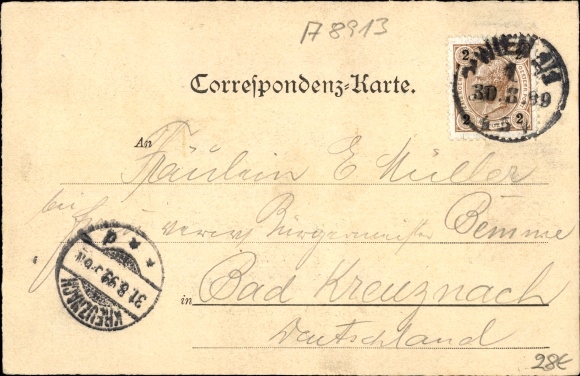 A 8913
Correspondenz-Karte.
2 2
WIEN
1
30.8.99
2 2
An
Fräulein E Müller
bei verw Bürgermeister Bemme
in Bad Kreuznach
Deutschland
KREUZNACH
31.8.99
28€